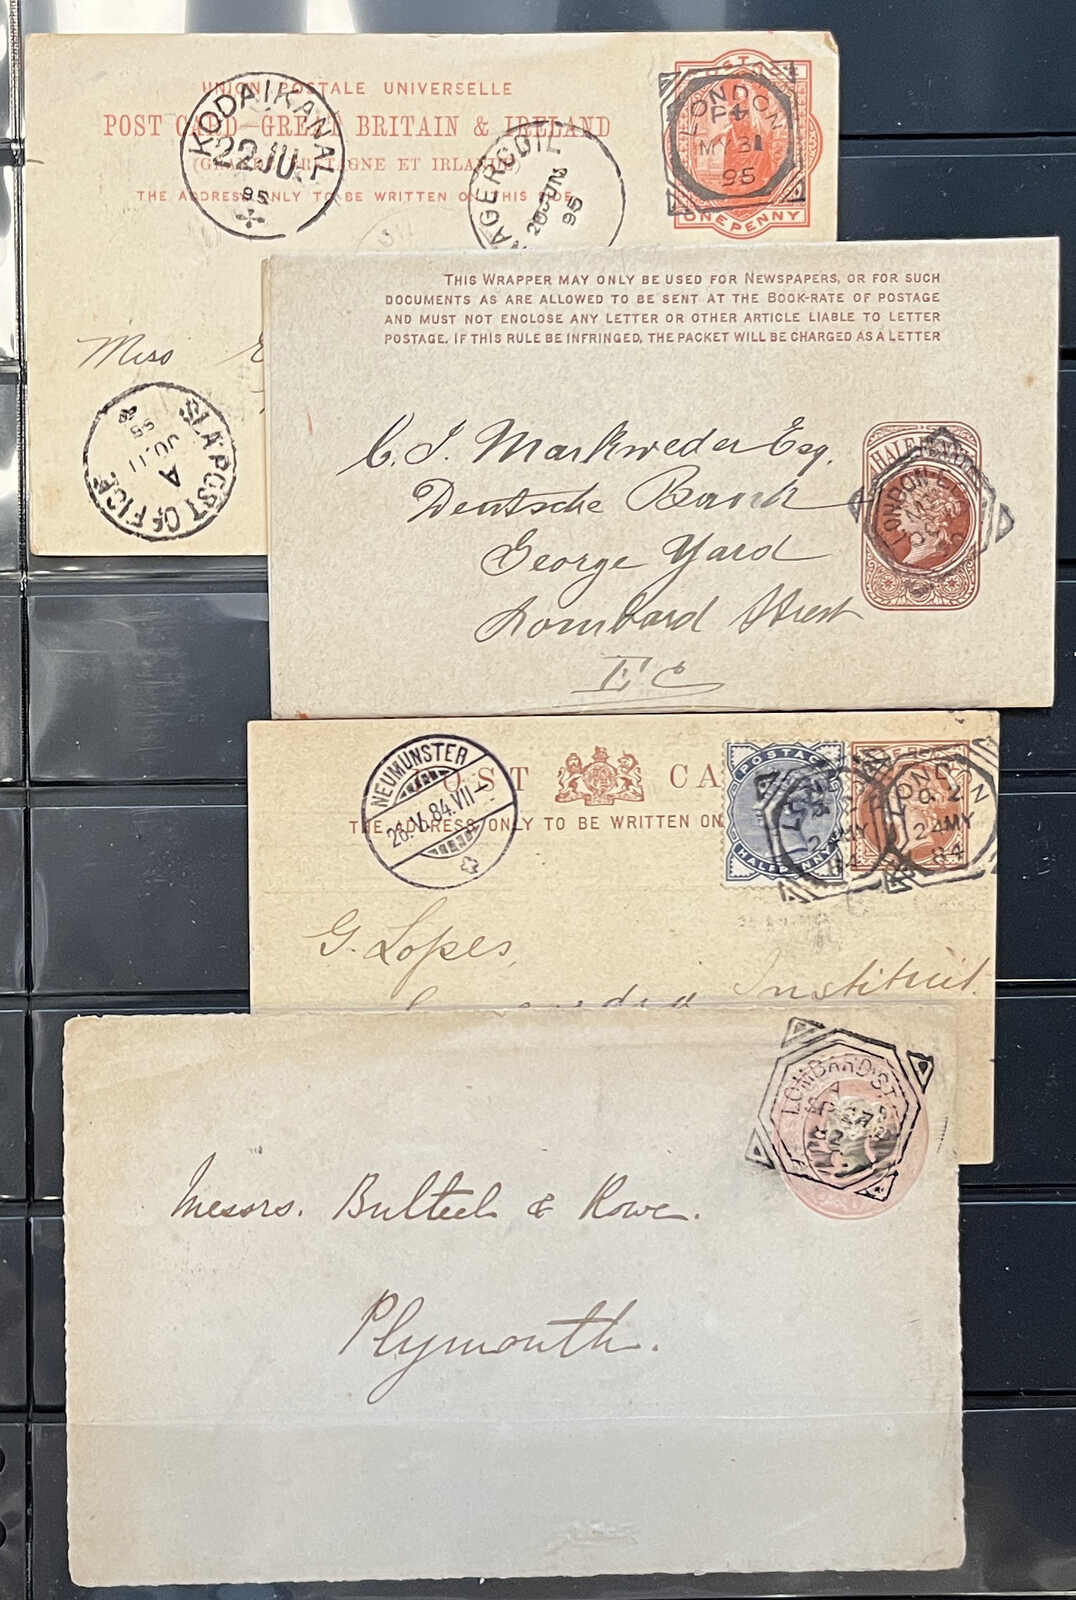 UNION POSTALE UNIVERSELLE
POST CARD—GREAT BRITAIN & IRELAND
(GRANDE BRETAGNE ET IRLANDE)
THE ADDRESS ONLY TO BE WRITTEN ON THIS SIDE
KODAIKANAL
22 JU.
95
AGERCOIL
95
POSTAGE
ONE PENNY
LONDON
MY 31
95
Miss
SEA POST OFFICE
A
JU. 11
95
THIS WRAPPER MAY ONLY BE USED FOR NEWSPAPERS, OR FOR SUCH
DOCUMENTS AS ARE ALLOWED TO BE SENT AT THE BOOK-RATE OF POSTAGE
AND MUST NOT ENCLOSE ANY LETTER OR OTHER ARTICLE LIABLE TO LETTER
POSTAGE. IF THIS RULE BE INFRINGED, THE PACKET WILL BE CHARGED AS A LETTER
HALFPENNY
LONDON
C. J. Markweder Esq.
Deutsche Bank
George Yard
Lombard Street
E C
POST CA
THE ADDRESS ONLY TO BE WRITTEN ON
NEUMÜNSTER
26.V.84.VII-
POSTAGE
HALFPENNY
84
LONDON
24 MY
84
G. Lopes,
Institut.
LOMBARD ST
A
SP 27
82
Messrs. Bulteel & Rowe.
Plymouth.